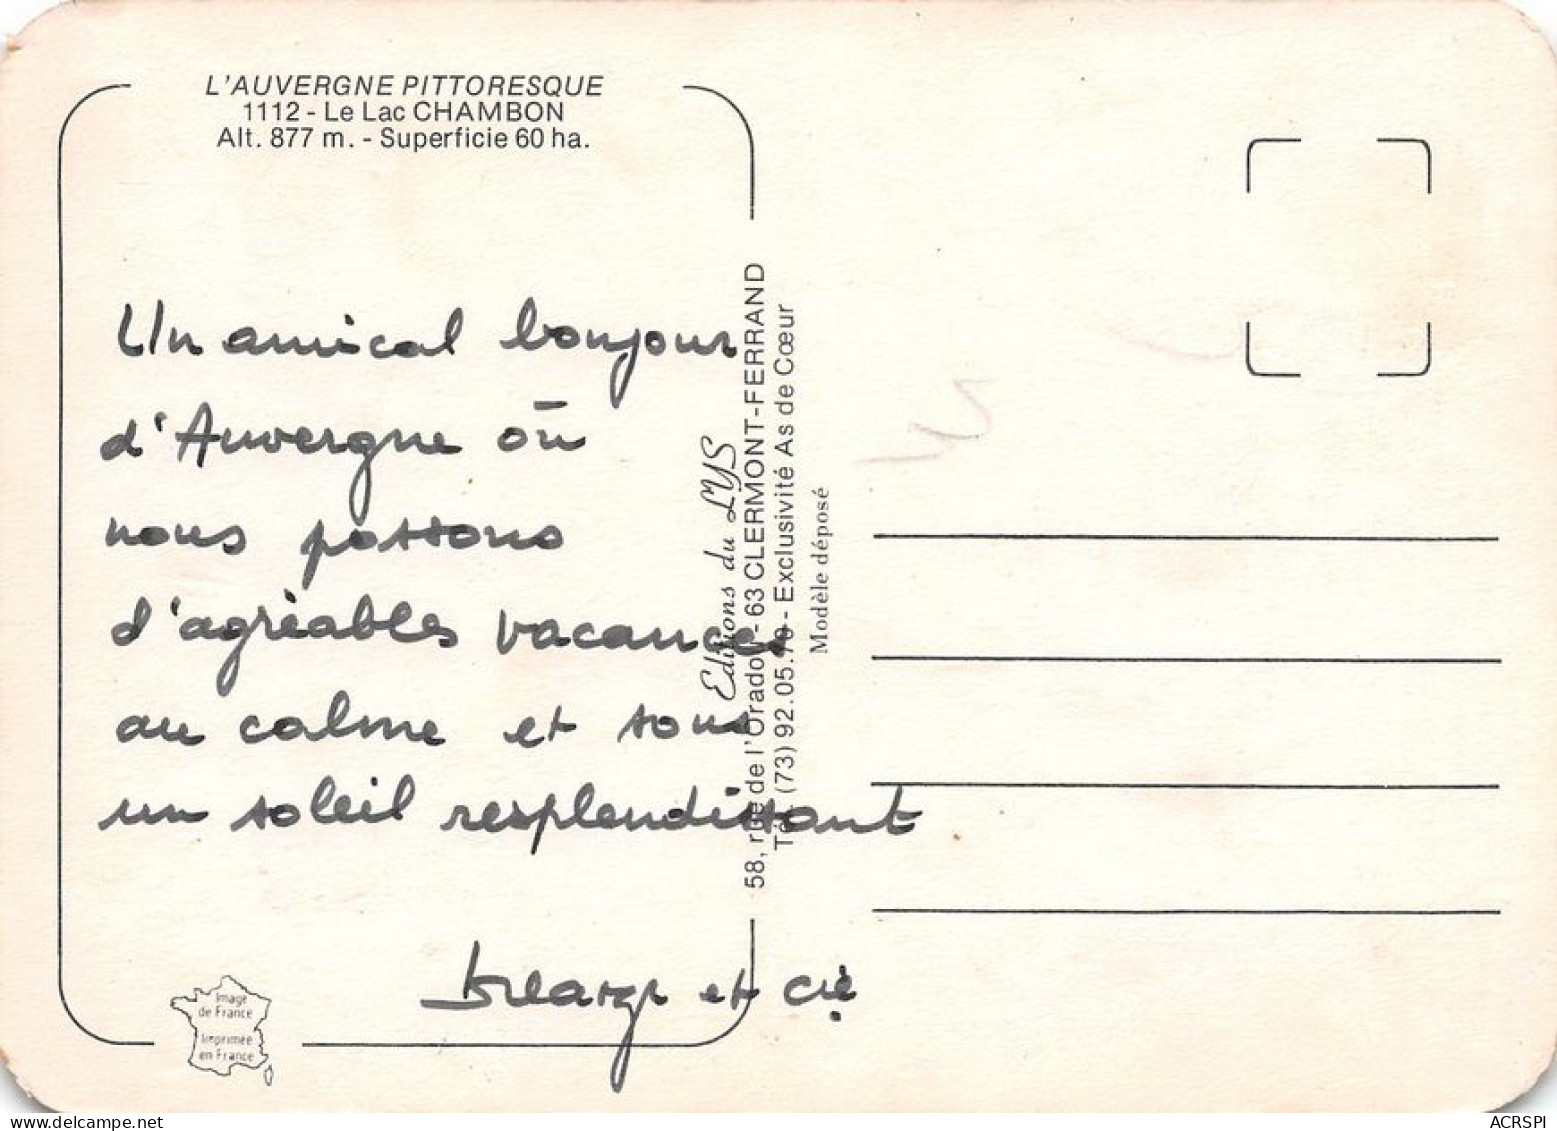 L'AUVERGNE PITTORESQUE
1112 - Le Lac CHAMBON
Alt. 877 m. - Superficie 60 ha.
Un amical bonjour
d'Auvergne où
nous passons
d'agréables vacances
au calme et sous
un soleil resplendissant
et Cie
Image
de France
Imprimée
en France
Editions du LYS
58, rue de l'Oradou - 63 CLERMONT-FERRAND
Tél. (73) 92.05.70 - Exclusivité As de Cœur
Modèle déposé
www.delcampe.net
ACRSPI